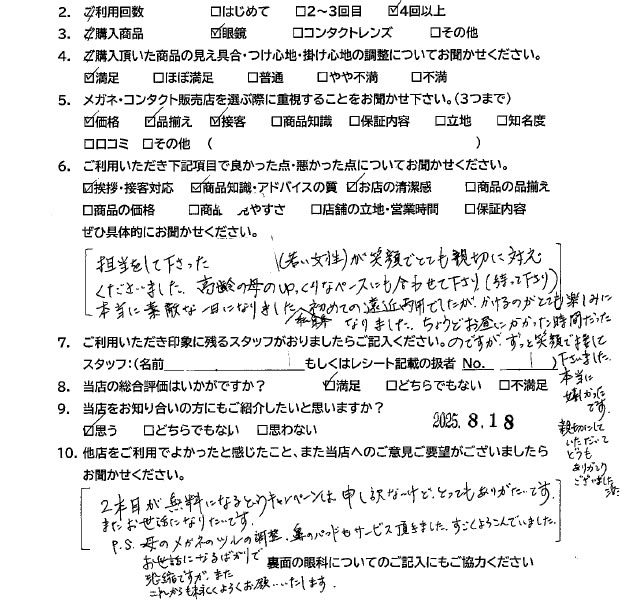 2. ご利用回数 □はじめて □2～3回目 ☑4回以上
3. ご購入商品 ☑眼鏡 □コンタクトレンズ □その他
4. ご購入頂いた商品の見え具合・つけ心地・掛け心地の調整についてお聞かせください。
☑満足 □ほぼ満足 □普通 □やや不満 □不満
5. メガネ・コンタクト販売店を選ぶ際に重視することをお聞かせ下さい。(3つまで)
☑価格 ☑品揃え ☑接客 □商品知識 □保証内容 □立地 □知名度
□口コミ □その他 ( )
6. ご利用いただき下記項目で良かった点・悪かった点についてお聞かせください。
☑挨拶・接客対応 ☑商品知識・アドバイスの質 ☑お店の清潔感 □商品の品揃え
□商品の価格 □商品 やすさ □店舗の立地・営業時間 □保証内容
ぜひ具体的にお聞かせください。
担当をして下さった (若い女性)が笑顔でとても親切に対応
くださいました。高齢の母のゆっくりなペースにも合わせて下さり(待って下さり)
本当に素敵な一日になりました。初めての遠近両用でしたが、かけるのがとても楽しみに
なりました。ちょうどお昼にかかった時間だった
のですが、ずっと笑顔で接して
下さいました。
本当に
嬉しかった
です。
親切にして
いただいて
どうも
ありがとう
ございました
7. ご利用いただき印象に残るスタッフがおりましたらご記入ください。
スタッフ:(名前 もしくはレシート記載の扱者 No. )
8. 当店の総合評価はいかがですか? ☑満足 □どちらでもない □不満足
9. 当店をお知り合いの方にもご紹介したいと思いますか?
☑思う □どちらでもない □思わない
2025.8.18
10. 他店をご利用でよかったと感じたこと、また当店へのご意見ご要望がございましたら
お聞かせください。
2本目が無料になるというキャンペーンは、申し訳ないけど、とってもありがたいです。
またお世話になりたいです。
P.S. 母のメガネのツルの調整、鼻のパッドもサービス頂きました。すごくよろこんでいました。
お世話になるばかりで
恐縮ですが、また
これからも末永くよろしくお願いいたします。
裏面の眼科についてのご記入にもご協力ください